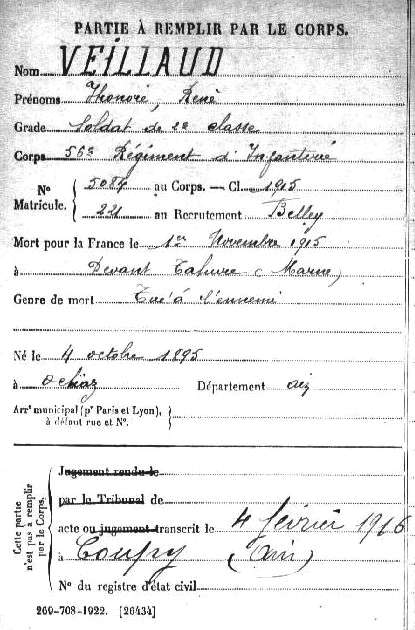 PARTIE À REMPLIR PAR LE CORPS.
Nom VEILLAUD
Prénoms Honoré, René
Grade Soldat de 2e classe
Corps 56e Régiment d'Infanterie
N° Matricule. { 5084 au Corps. — Cl. 1915
221 au Recrutement Belley
Mort pour la France le 1er Novembre 1915
à Devant Tahure (Marne)
Genre de mort Tué à l'ennemi
Né le 4 octobre 1895
à Ochiaz Département Ain
Arr¹ municipal (p¹ Paris et Lyon), à défaut rue et N°. }
Cette partie n'est pas à remplir par le Corps.
Jugement rendu le
par le Tribunal de
acte ou jugement transcrit le 4 février 1916
à Coupy (Ain)
N° du registre d'état civil
260-708-1922. [26434]